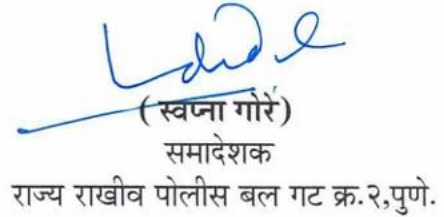 ( स्वप्ना गोरे )
समादेशक
राज्य राखीव पोलीस बल गट क्र.२,पुणे.